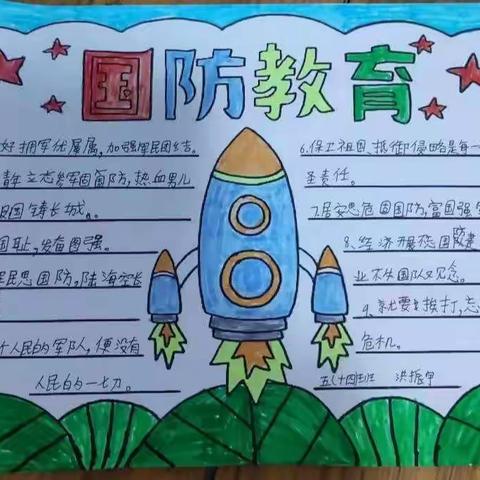 国防教育
好拥军优属, 加强军民团结。
青年立志参军固国防, 热血男儿
报国铸长城。
国耻, 发奋图强。
军民思国防, 陆海空长
个人民的军队, 便没有
人民的一切。
6.保卫祖国、抵御侵略是每一
圣责任。
7.居安思危固国防, 富国强
8、经济开花国防建
业不忘国队忧患。
9、就要挨打, 忘
危机。
五(十四)班 洪振甲